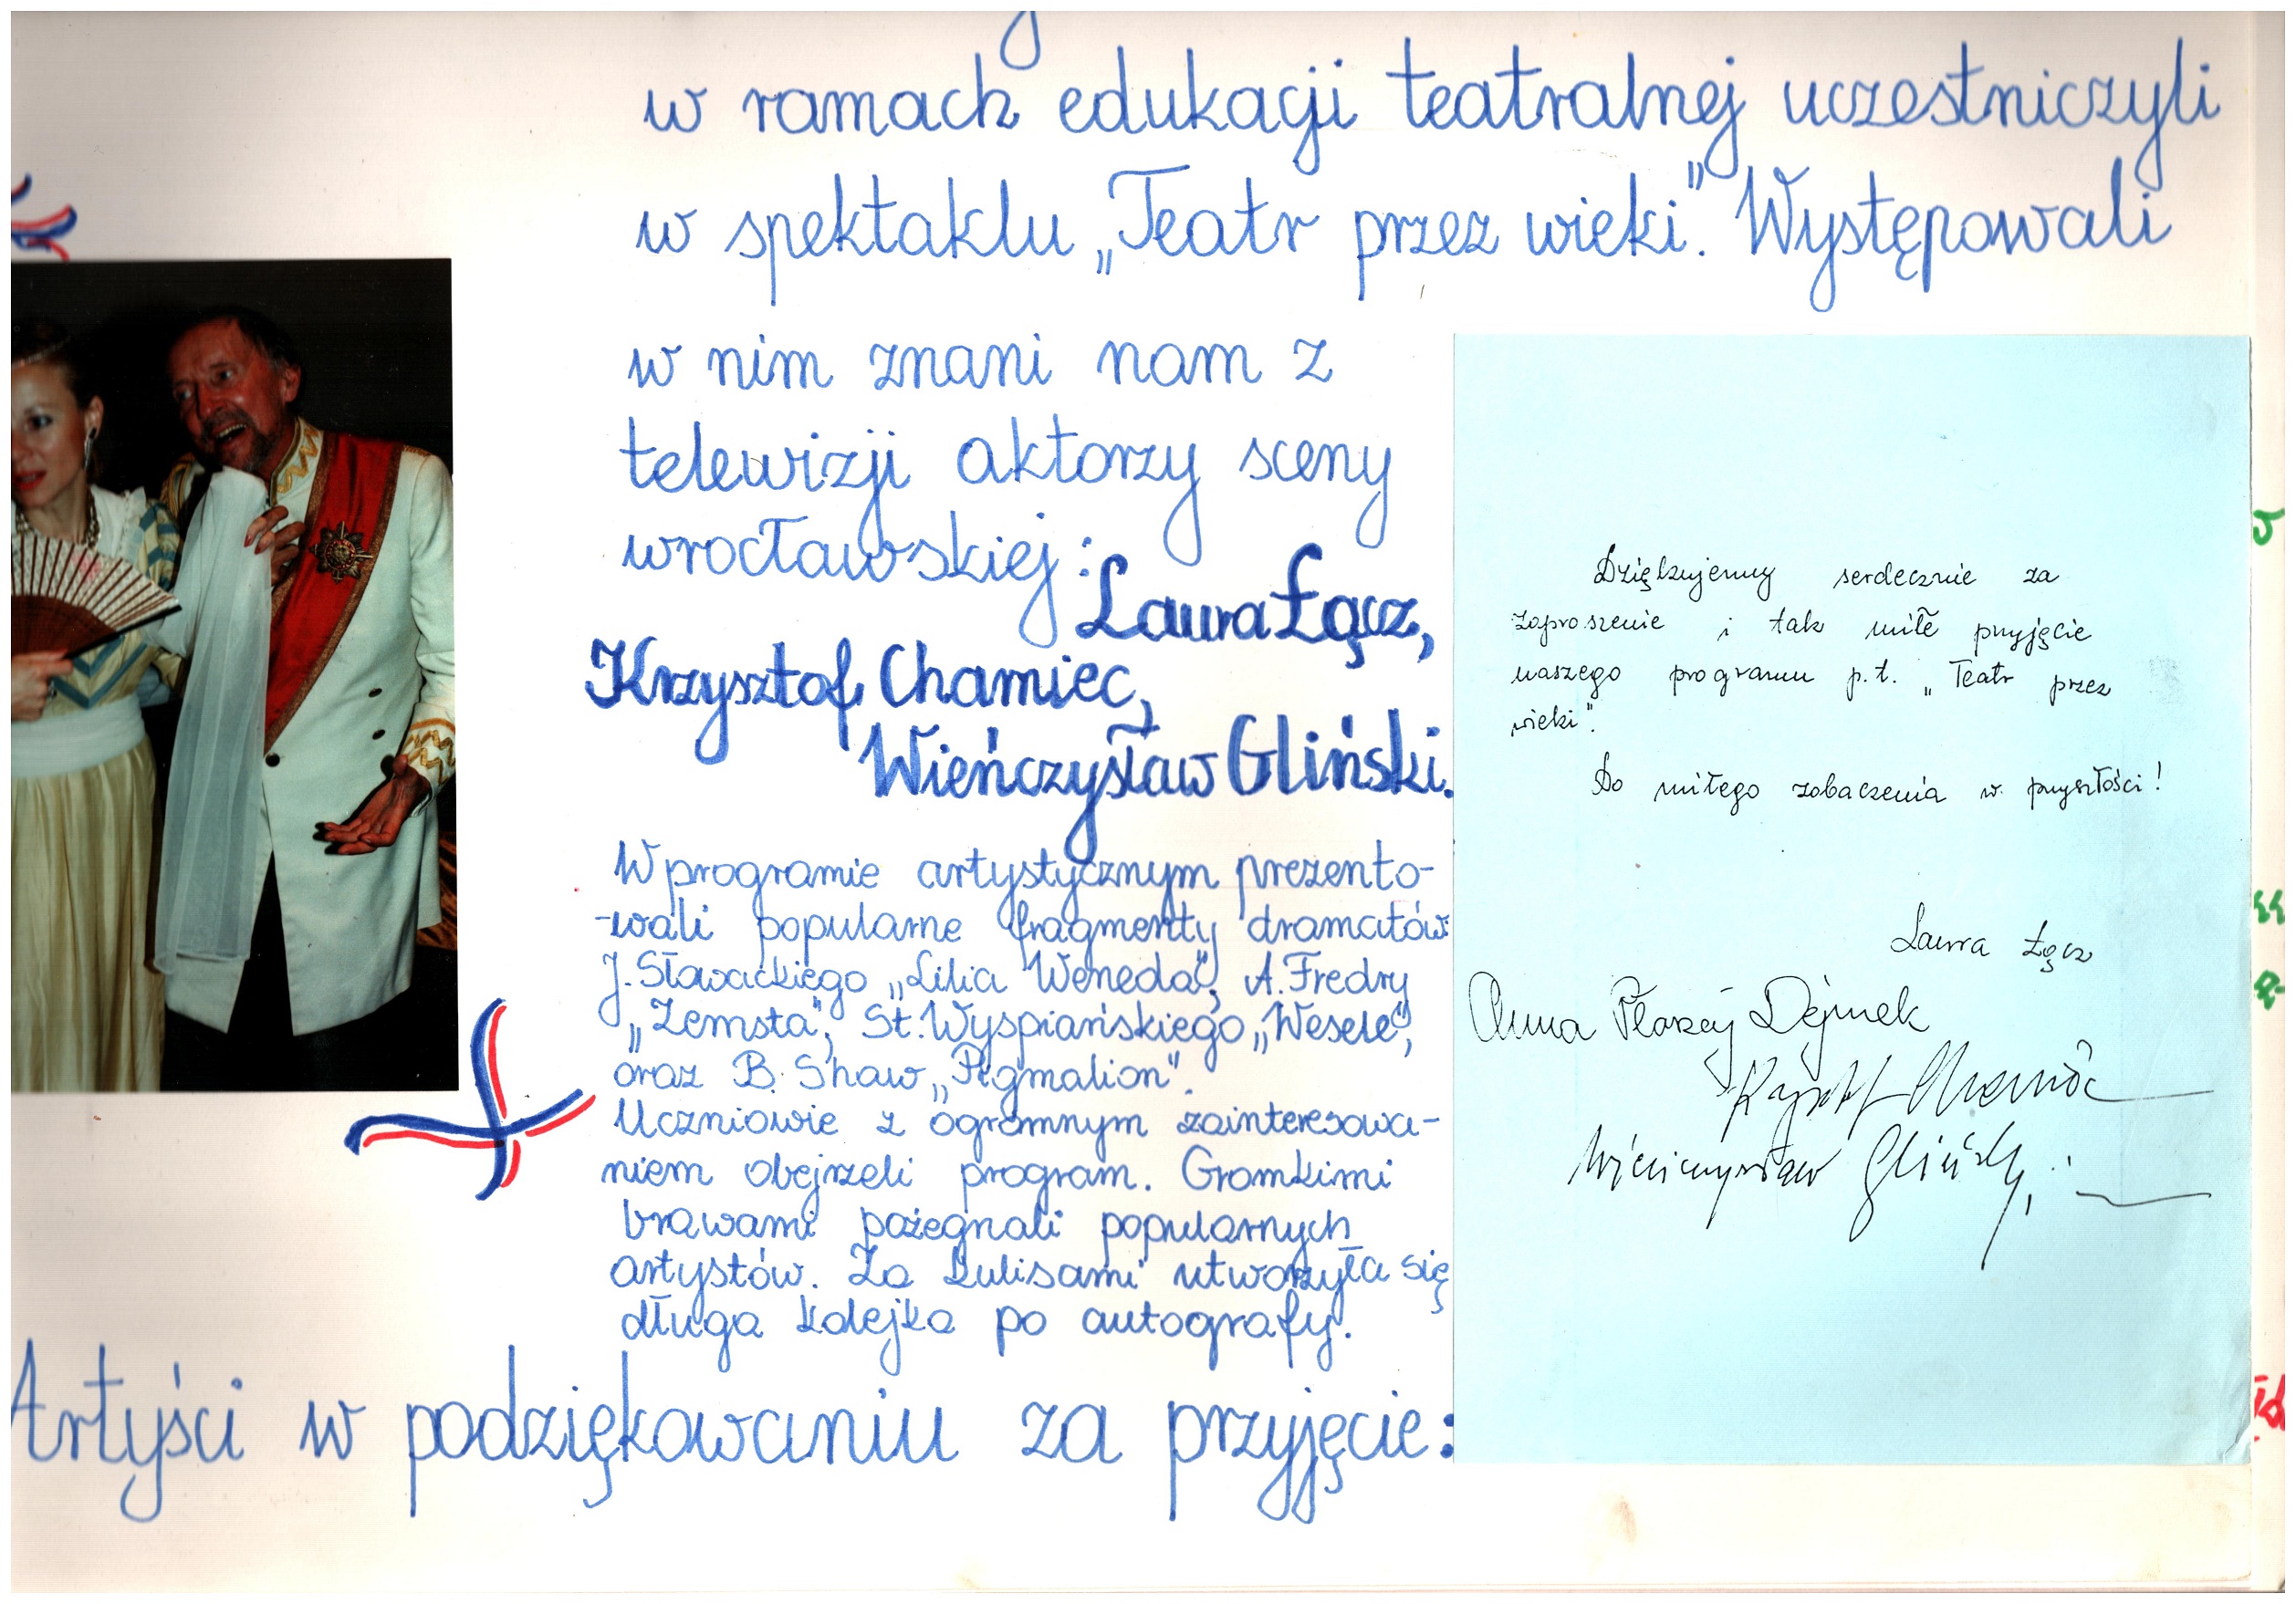 w ramach edukacji teatralnej uczestniczyli
w spektaklu „Teatr przez wieki". Występowali
w nim znani nam z
telewizji aktorzy sceny
wrocławskiej:
Laura Łącz,
Krzysztof Chamiec,
Wieńczysław Gliński.
W programie artystycznym prezento-
-wali popularne fragmenty dramatów
J. Słowackiego „Lilia Weneda", A. Fredry
„Zemsta", St. Wyspiańskiego „Wesele",
oraz B. Shaw „Pigmalion".
Uczniowie z ogromnym zainteresowa-
niem obejrzeli program. Gromkimi
brawami pożegnali popularnych
artystów. Za kulisami utworzyła się
długa kolejka po autografy.
Artyści w podziękowaniu za przyjęcie:
Dziękujemy serdecznie za
zaproszenie i tak miłe przyjęcie
naszego programu p.t. „Teatr przez
wieki".
Do miłego zobaczenia w przyszłości!
Laura Łącz
Anna Płoszaj Dejmek
Krzysztof Chamiec
Wieńczysław Gliński